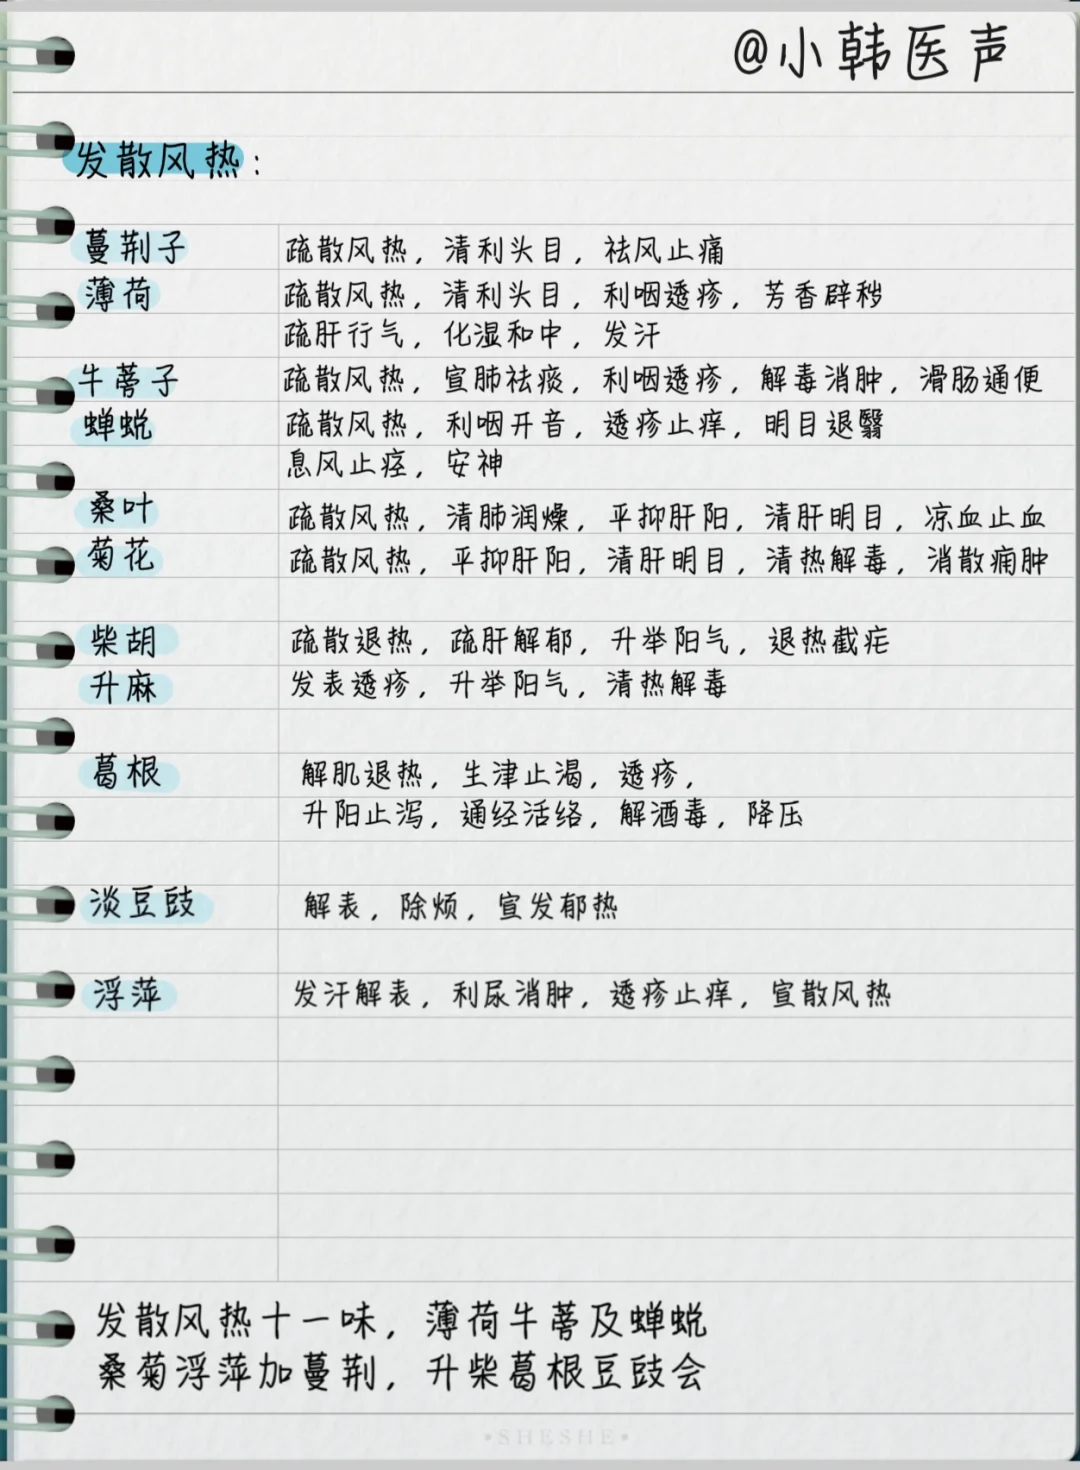 @小韩医声
发散风热：
蔓荆子 疏散风热，清利头目，祛风止痛
薄荷 疏散风热，清利头目，利咽透疹，芳香辟秽
疏肝行气，化湿和中，发汗
牛蒡子 疏散风热，宣肺祛痰，利咽透疹，解毒消肿，滑肠通便
蝉蜕 疏散风热，利咽开音，透疹止痒，明目退翳
息风止痉，安神
桑叶 疏散风热，清肺润燥，平抑肝阳，清肝明目，凉血止血
菊花 疏散风热，平抑肝阳，清肝明目，清热解毒，消散痈肿
柴胡 疏散退热，疏肝解郁，升举阳气，退热截疟
升麻 发表透疹，升举阳气，清热解毒
葛根 解肌退热，生津止渴，透疹，
升阳止泻，通经活络，解酒毒，降压
淡豆豉 解表，除烦，宣发郁热
浮萍 发汗解表，利尿消肿，透疹止痒，宣散风热
发散风热十一味，薄荷牛蒡及蝉蜕
桑菊浮萍加蔓荆，升柴葛根豆豉会
•SHESHE•